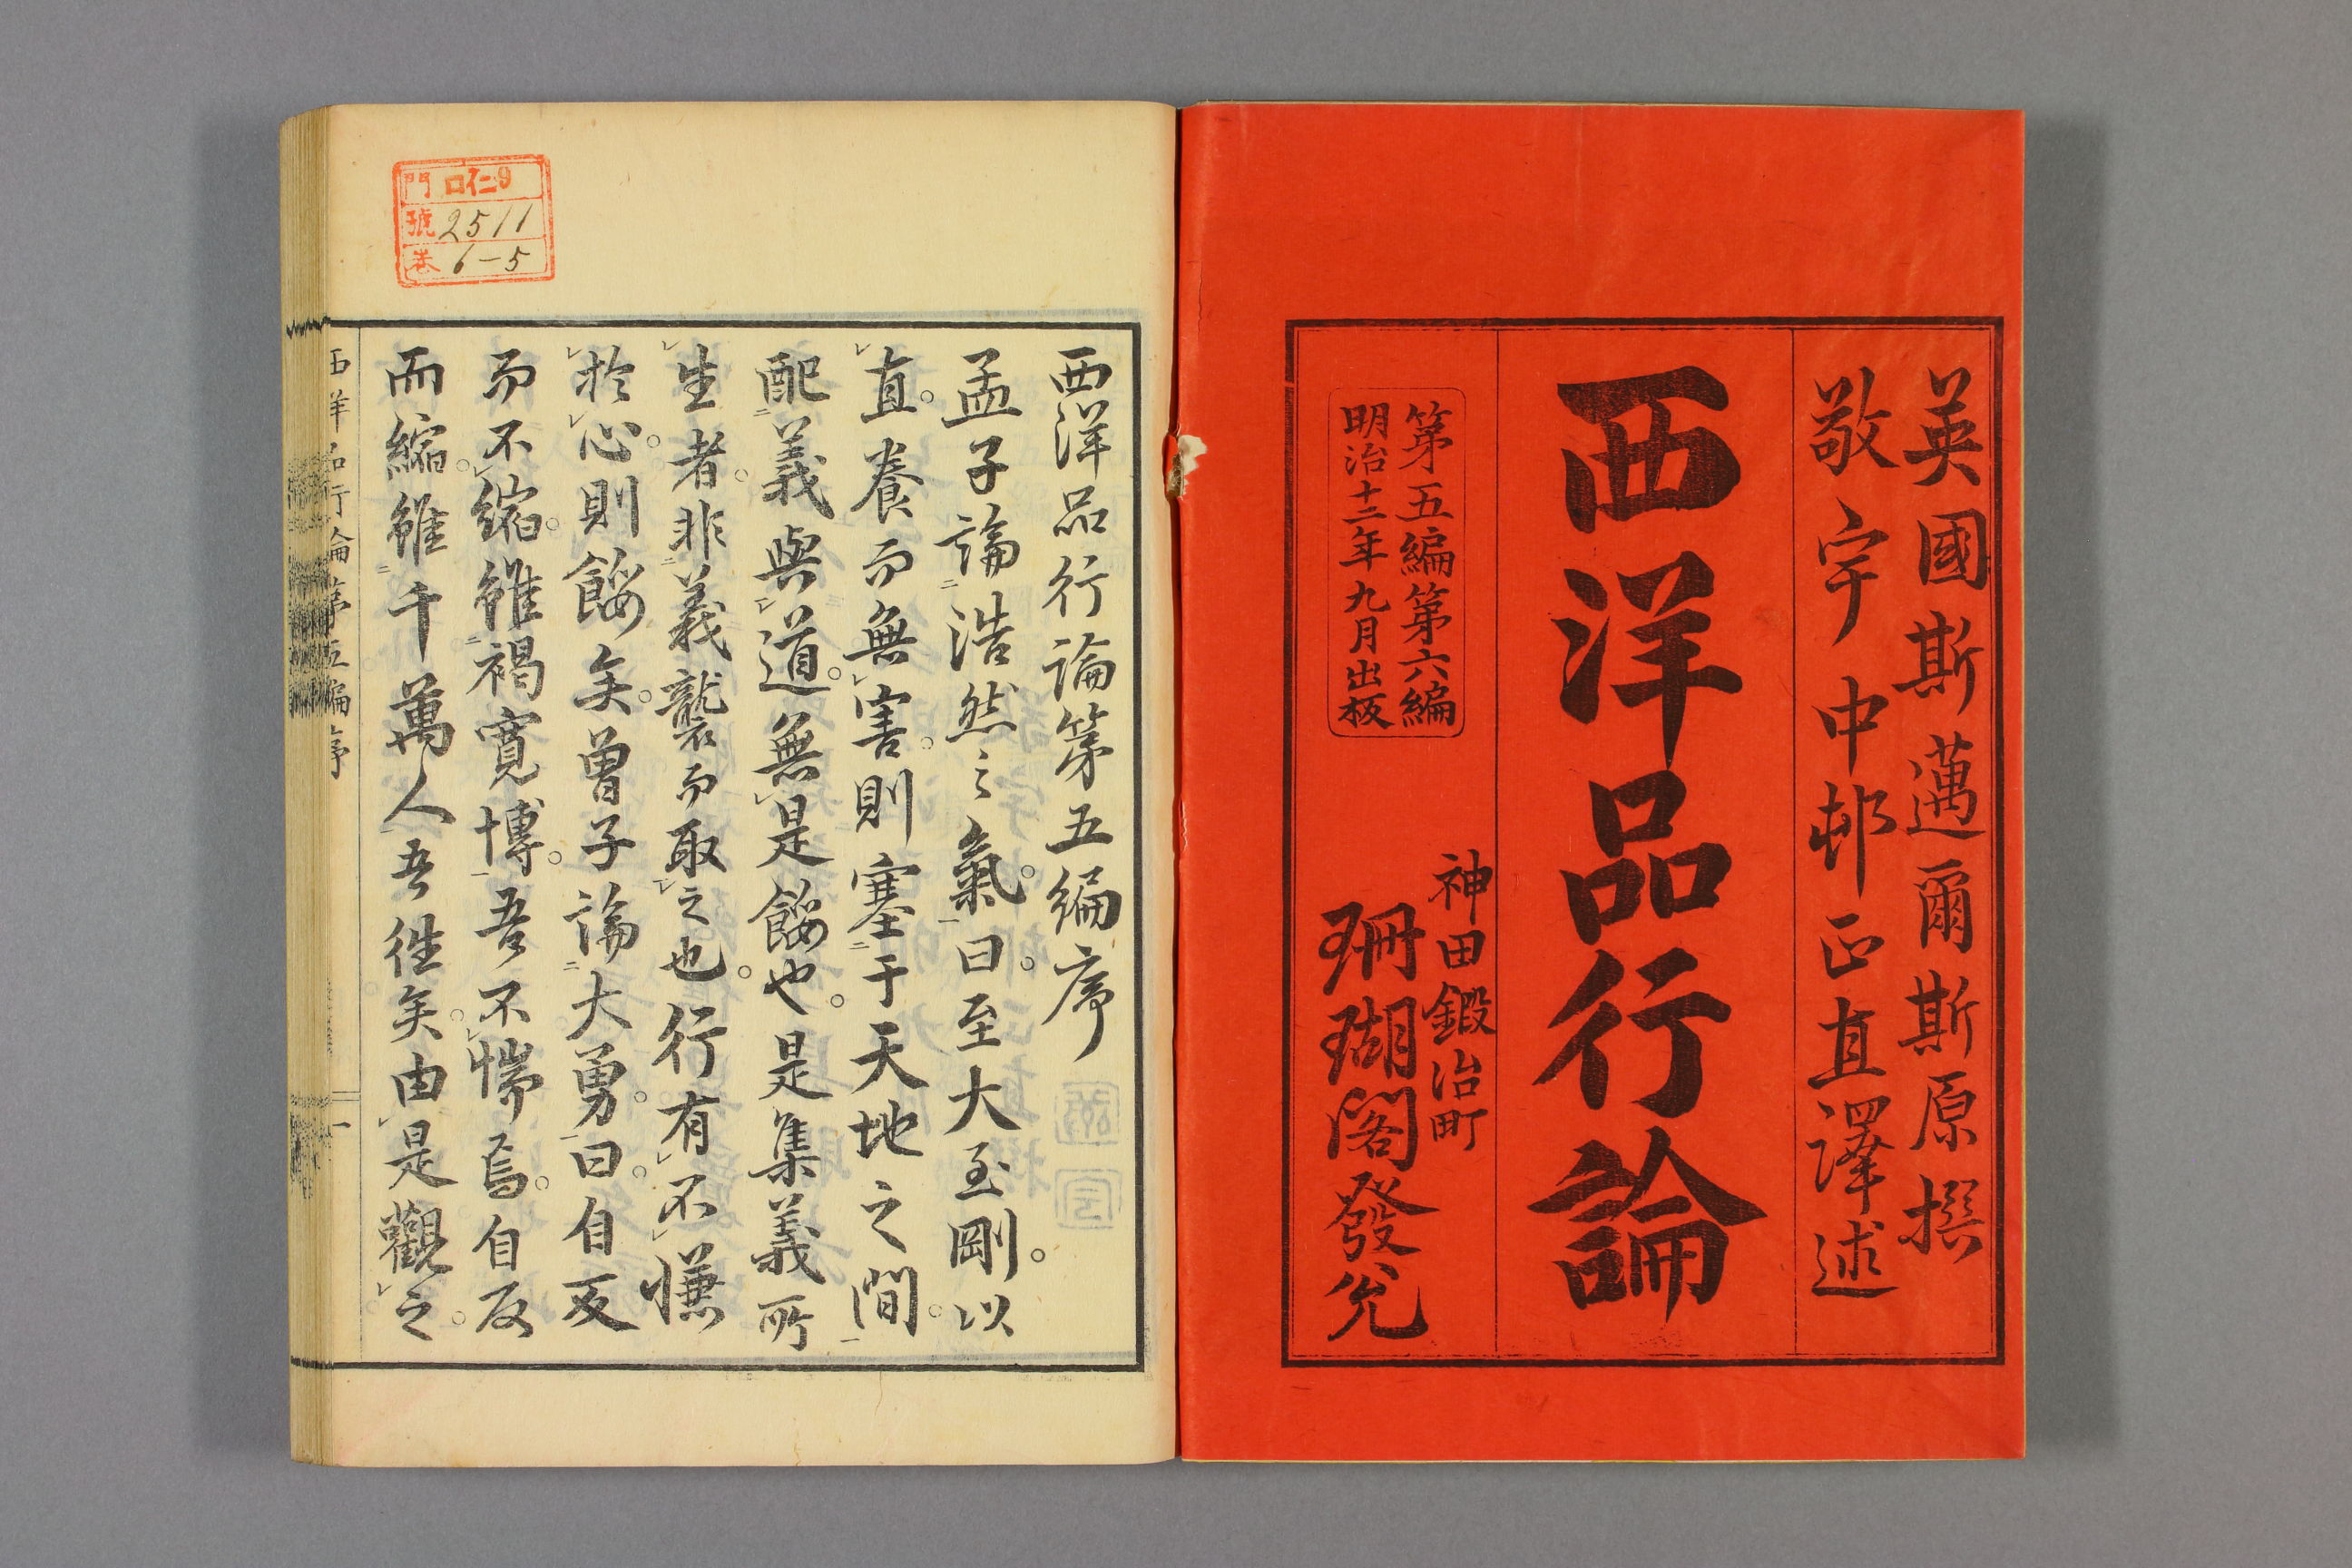 英國斯邁爾斯原撰
敬宇中邨正直譯述
西洋品行論
第五編第六編
明治十二年九月出板
神田鍛冶町
珊瑚閣發兌
門 口仁9
號 2511
巻 6-5
西洋品行論第五編序
孟子論浩然之氣曰至大至剛以
直養而無害則塞于天地之間
配義與道無是餒也是集義所
生者非義襲而取之也行有不慊
於心則餒矣曾子論大勇曰自反
而不縮雖褐寛博吾不惴焉自反
而縮雖千萬人吾徃矣由是觀之
西洋品行論第五編序 一